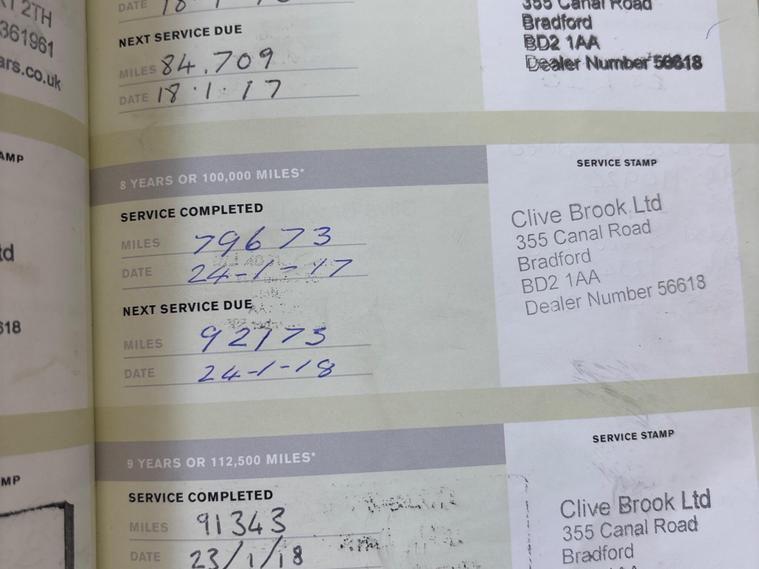 DATE
NEXT SERVICE DUE
MILES 84.709
DATE 18.1.17
355 Canal Road
Bradford
BD2 1AA
Dealer Number 56618
2TH
361961
ars.co.uk
AMP
td
618
MP
8 YEARS OR 100,000 MILES*
SERVICE COMPLETED
MILES 79673
DATE 24-1-17
NEXT SERVICE DUE
MILES 92173
DATE 24-1-18
SERVICE STAMP
Clive Brook Ltd
355 Canal Road
Bradford
BD2 1AA
Dealer Number 56618
9 YEARS OR 112,500 MILES*
SERVICE COMPLETED
MILES 91343
DATE 23/1/18
SERVICE STAMP
Clive Brook Ltd
355 Canal Road
Bradford